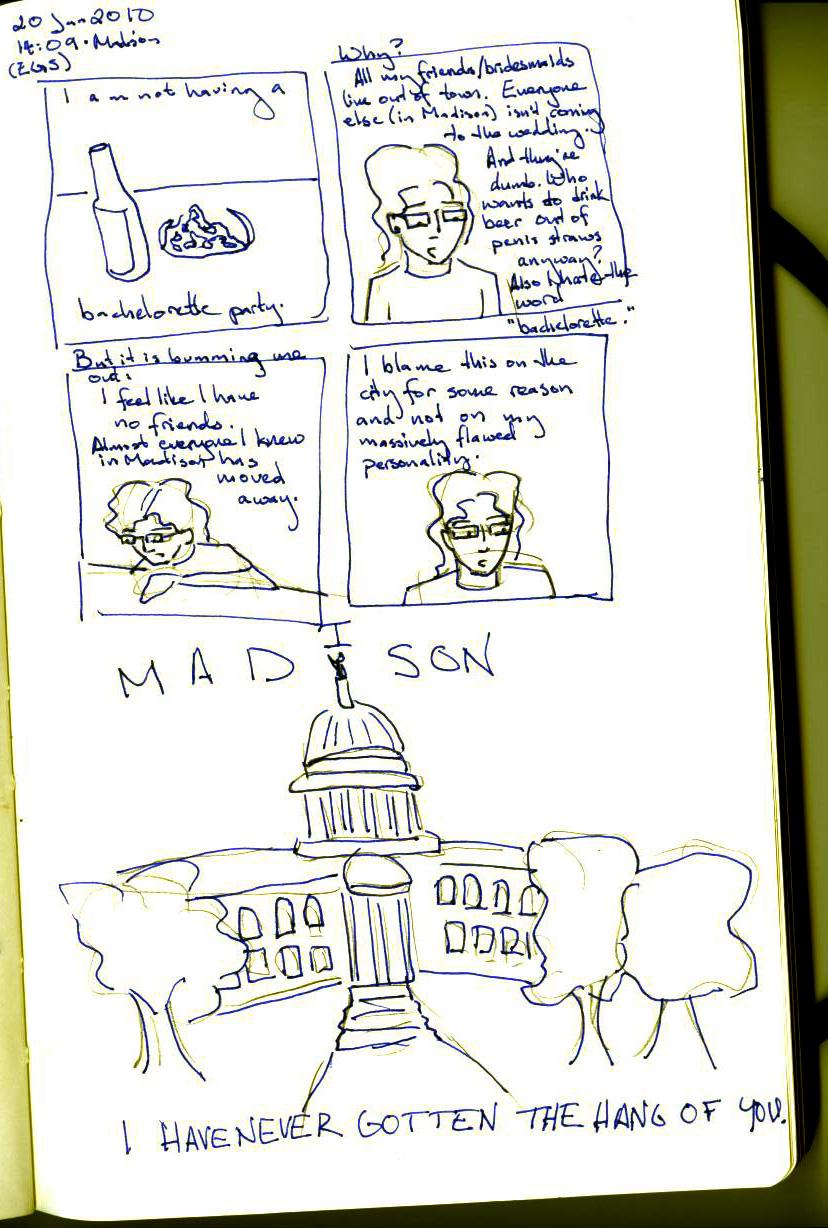 20 Jan 2010
14:09 · Madison
(EGS)
I am not having a
bachelorette party.
Why?
All my friends/bridesmaids
live out of town. Everyone
else (in Madison) isn't coming
to the wedding.
And they're
dumb. Who
wants to drink
beer out of
penis straws
anyway?
Also I hate the
word
"bachelorette."
But it is bumming me
out:
I feel like I have
no friends.
Almost everyone I knew
in Madison has
moved
away.
I blame this on the
city for some reason
and not on my
massively flawed
personality.
MADISON
I HAVE NEVER GOTTEN THE HANG OF YOU.